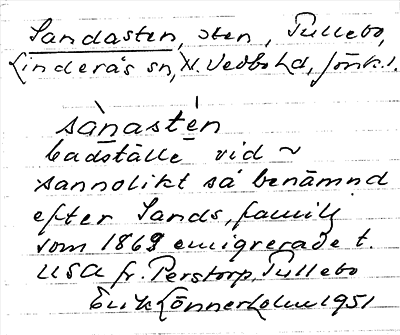 Sandasten, sten, Tullebo,
Linderås sn, N. Vedbo hd, Jönk. l.
sànastén
badställe vid ~
sannolikt så benämnd
efter Sands, familj
som 1869 emigrerade t.
USA fr. Perstorp, Tullebo
Erik Lönnerholm 1951